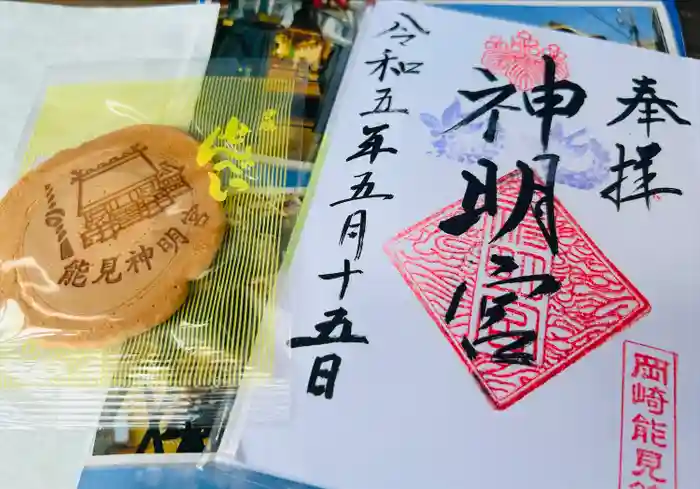 奉拝
神明宮
岡崎能見
令和五年五月十五日
能見神明宮